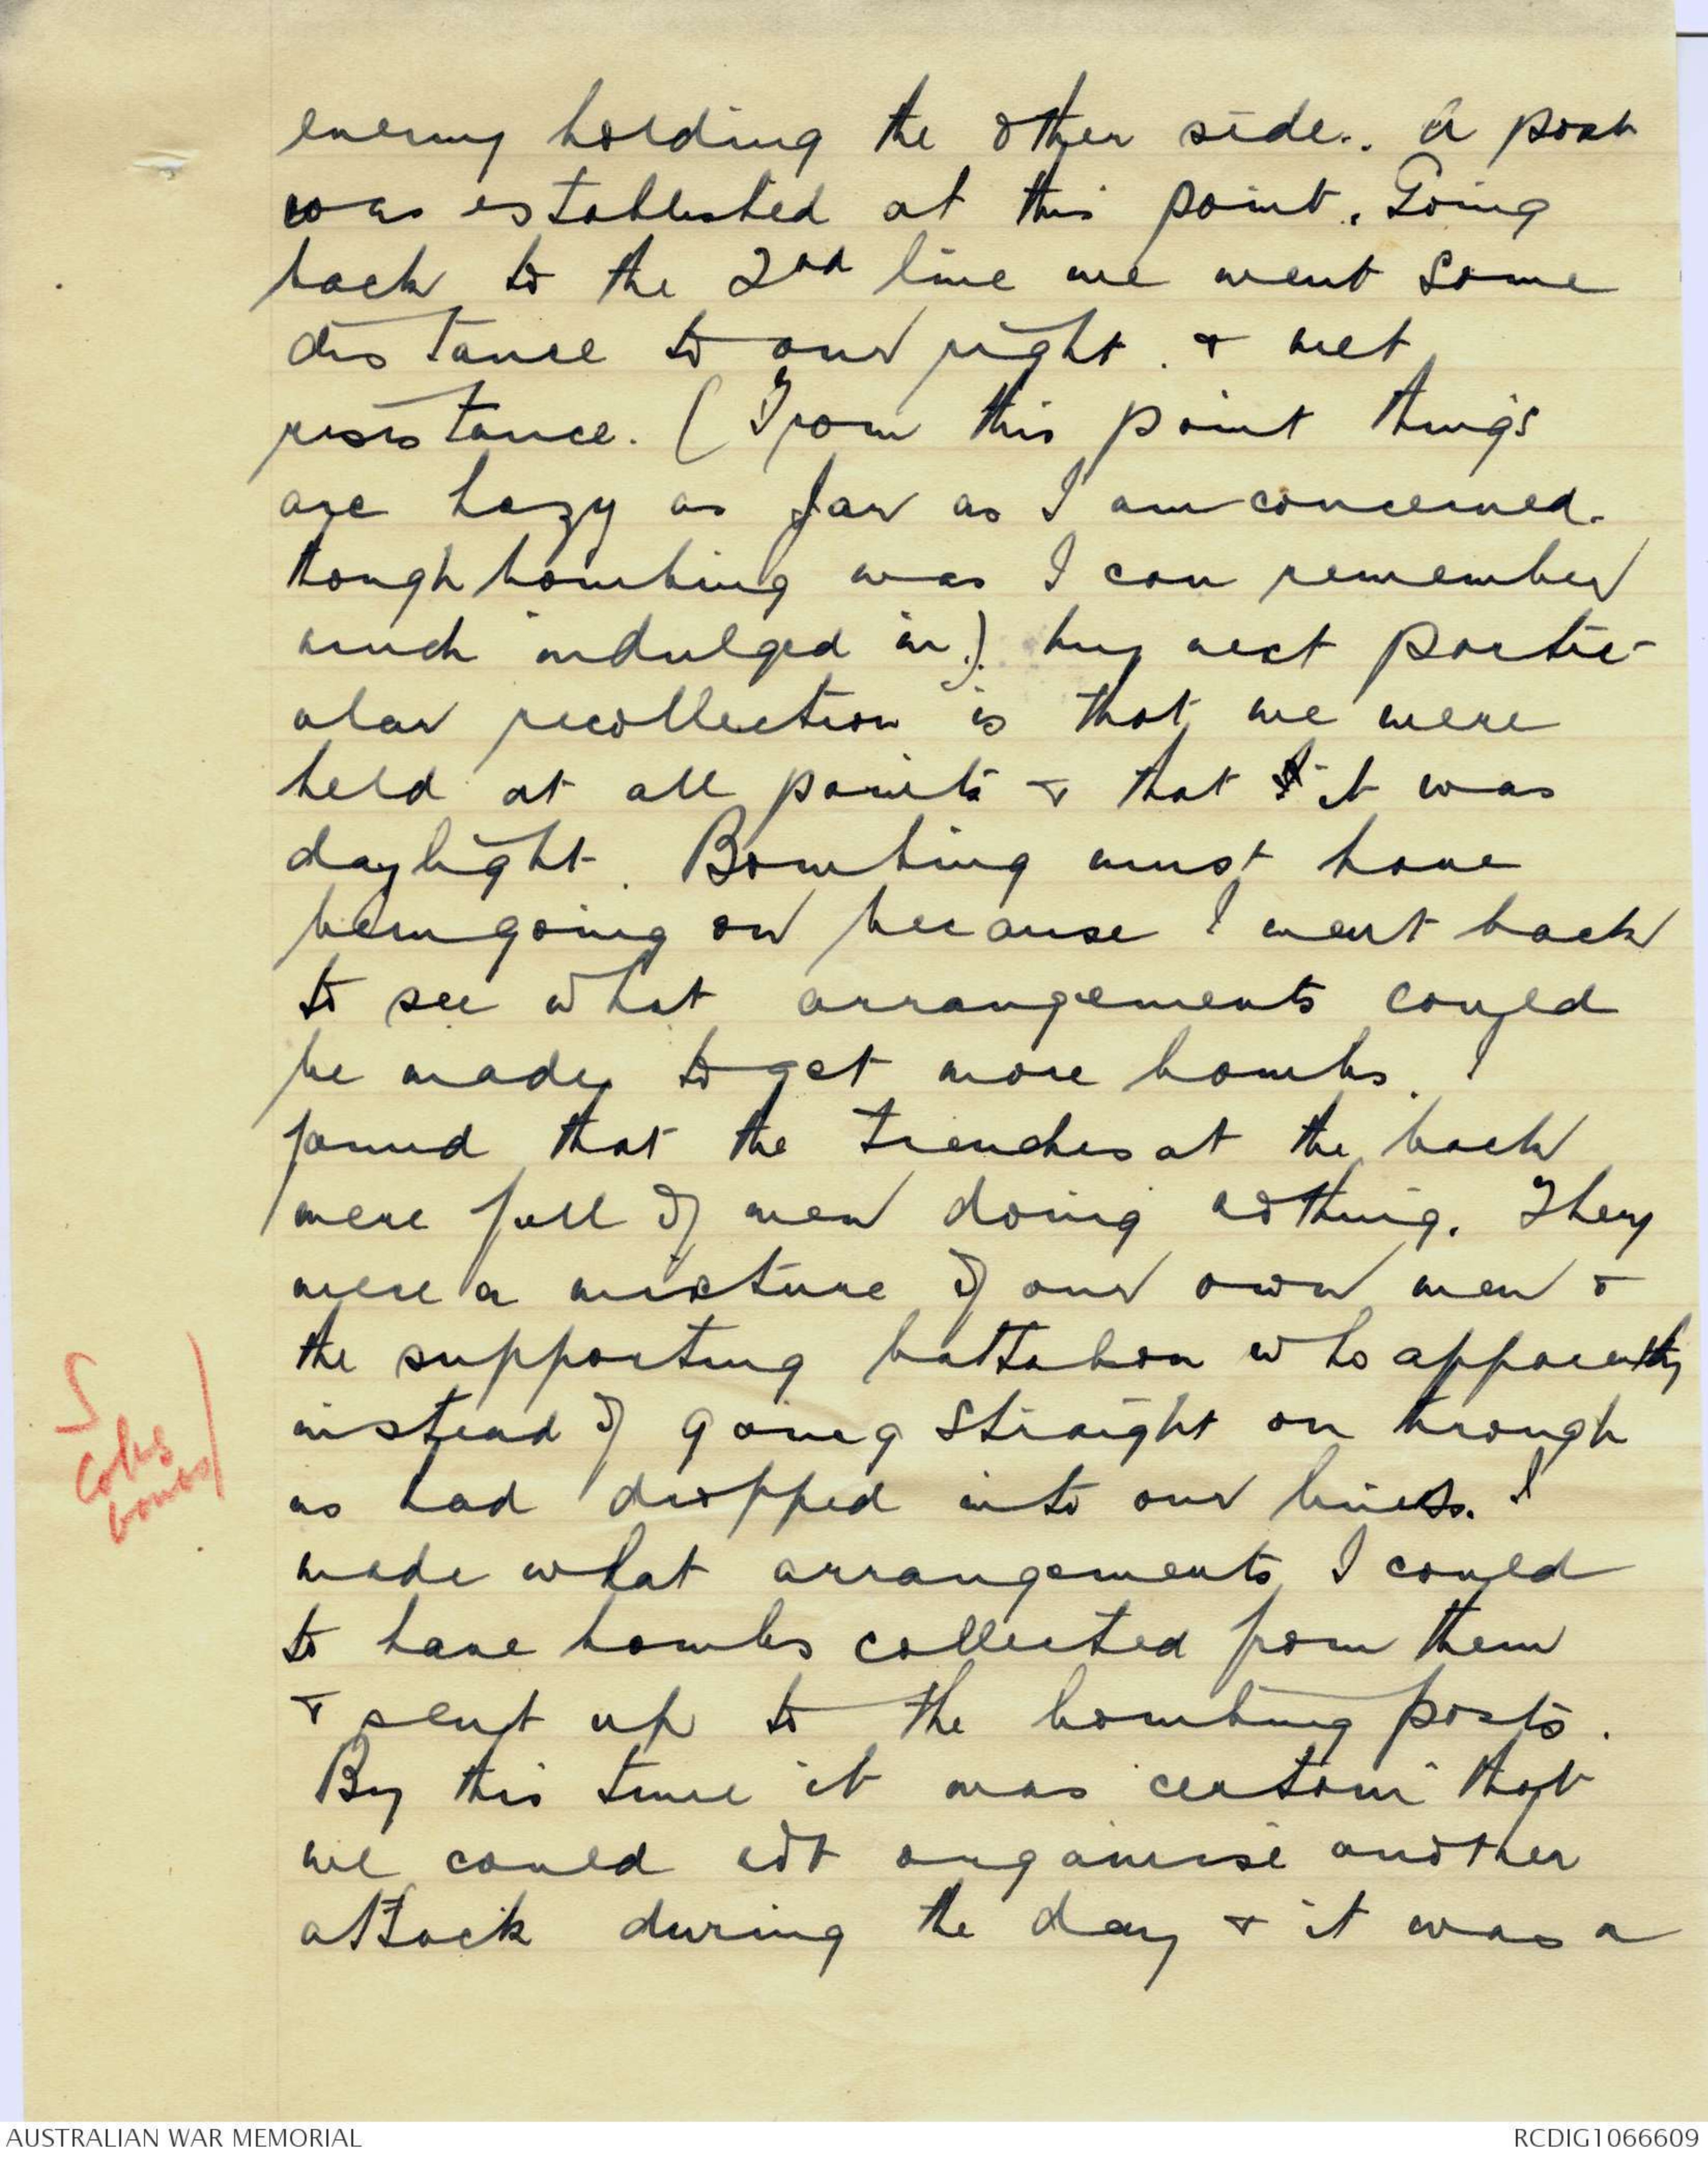 enemy holding the other side.. A post
was established at this point. Going
back to the 2nd line we went some
distance to our right. & met
resistance. (From this point things
are hazy as far as I am concerned.
though bombing was I can remember
much indulged in). My next partic-
ular recollection is that we were
held at all points & that it was
daylight. Bombing must have
been going on because I went back
to see what arrangements could
be made to get more bombs. I
found that the trenches at the back
were full of men doing nothing. They
were a mixture of our own men &
the supporting battalion who apparently
instead of going straight on through
us had dropped into our lines. I
made what arrangements I could
to have bombs collected from them
& sent up to the bombing posts.
By this time it was certain that
we could not organise another
attack during the day & it was a
AUSTRALIAN WAR MEMORIAL
RCDIG1066609